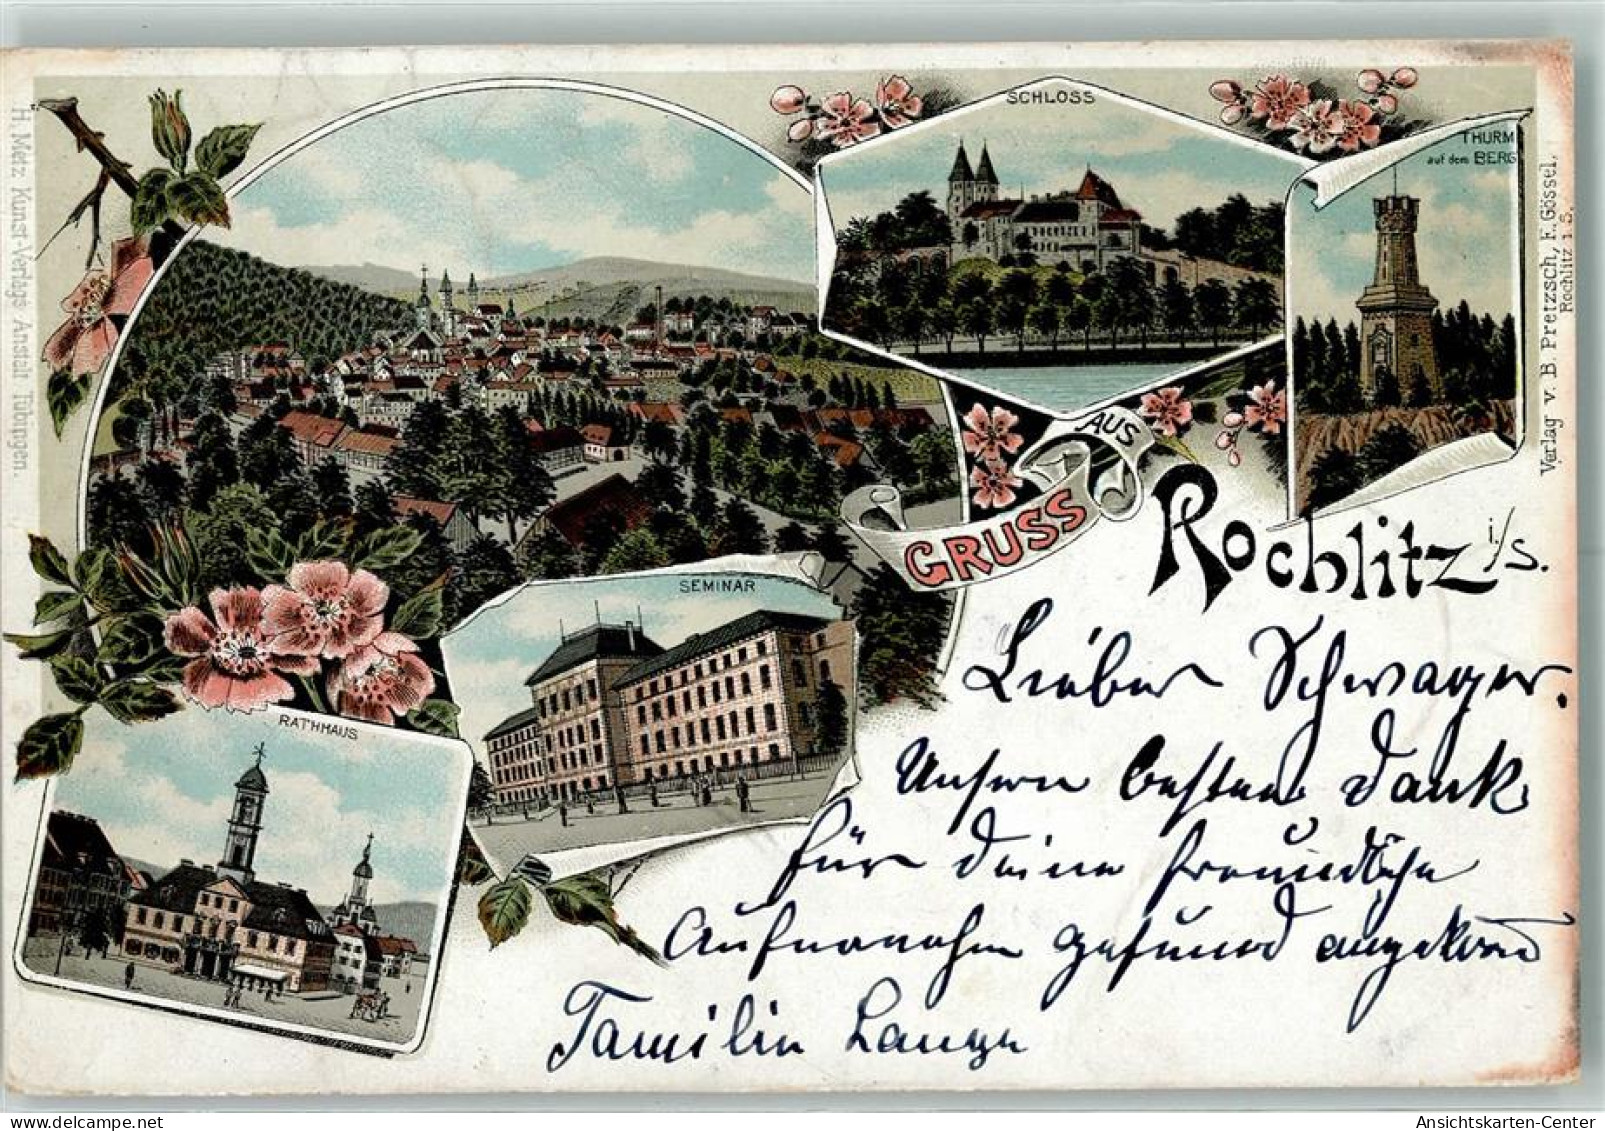 SCHLOSS
THURM
auf dem BERG
GRUSS AUS
Rochlitz i/S.
SEMINAR
RATHHAUS
Lieber Schwager.
Unsern besten Dank
für Deine freundliche
Aufnahme gesund angekomm
Familie Lange
H. Metz Kunst-Verlags Anstalt Tübingen.
Verlag v. B. Pretzsch, E. Gössel.
Rochlitz i. S.
Ansichtskarten-Center